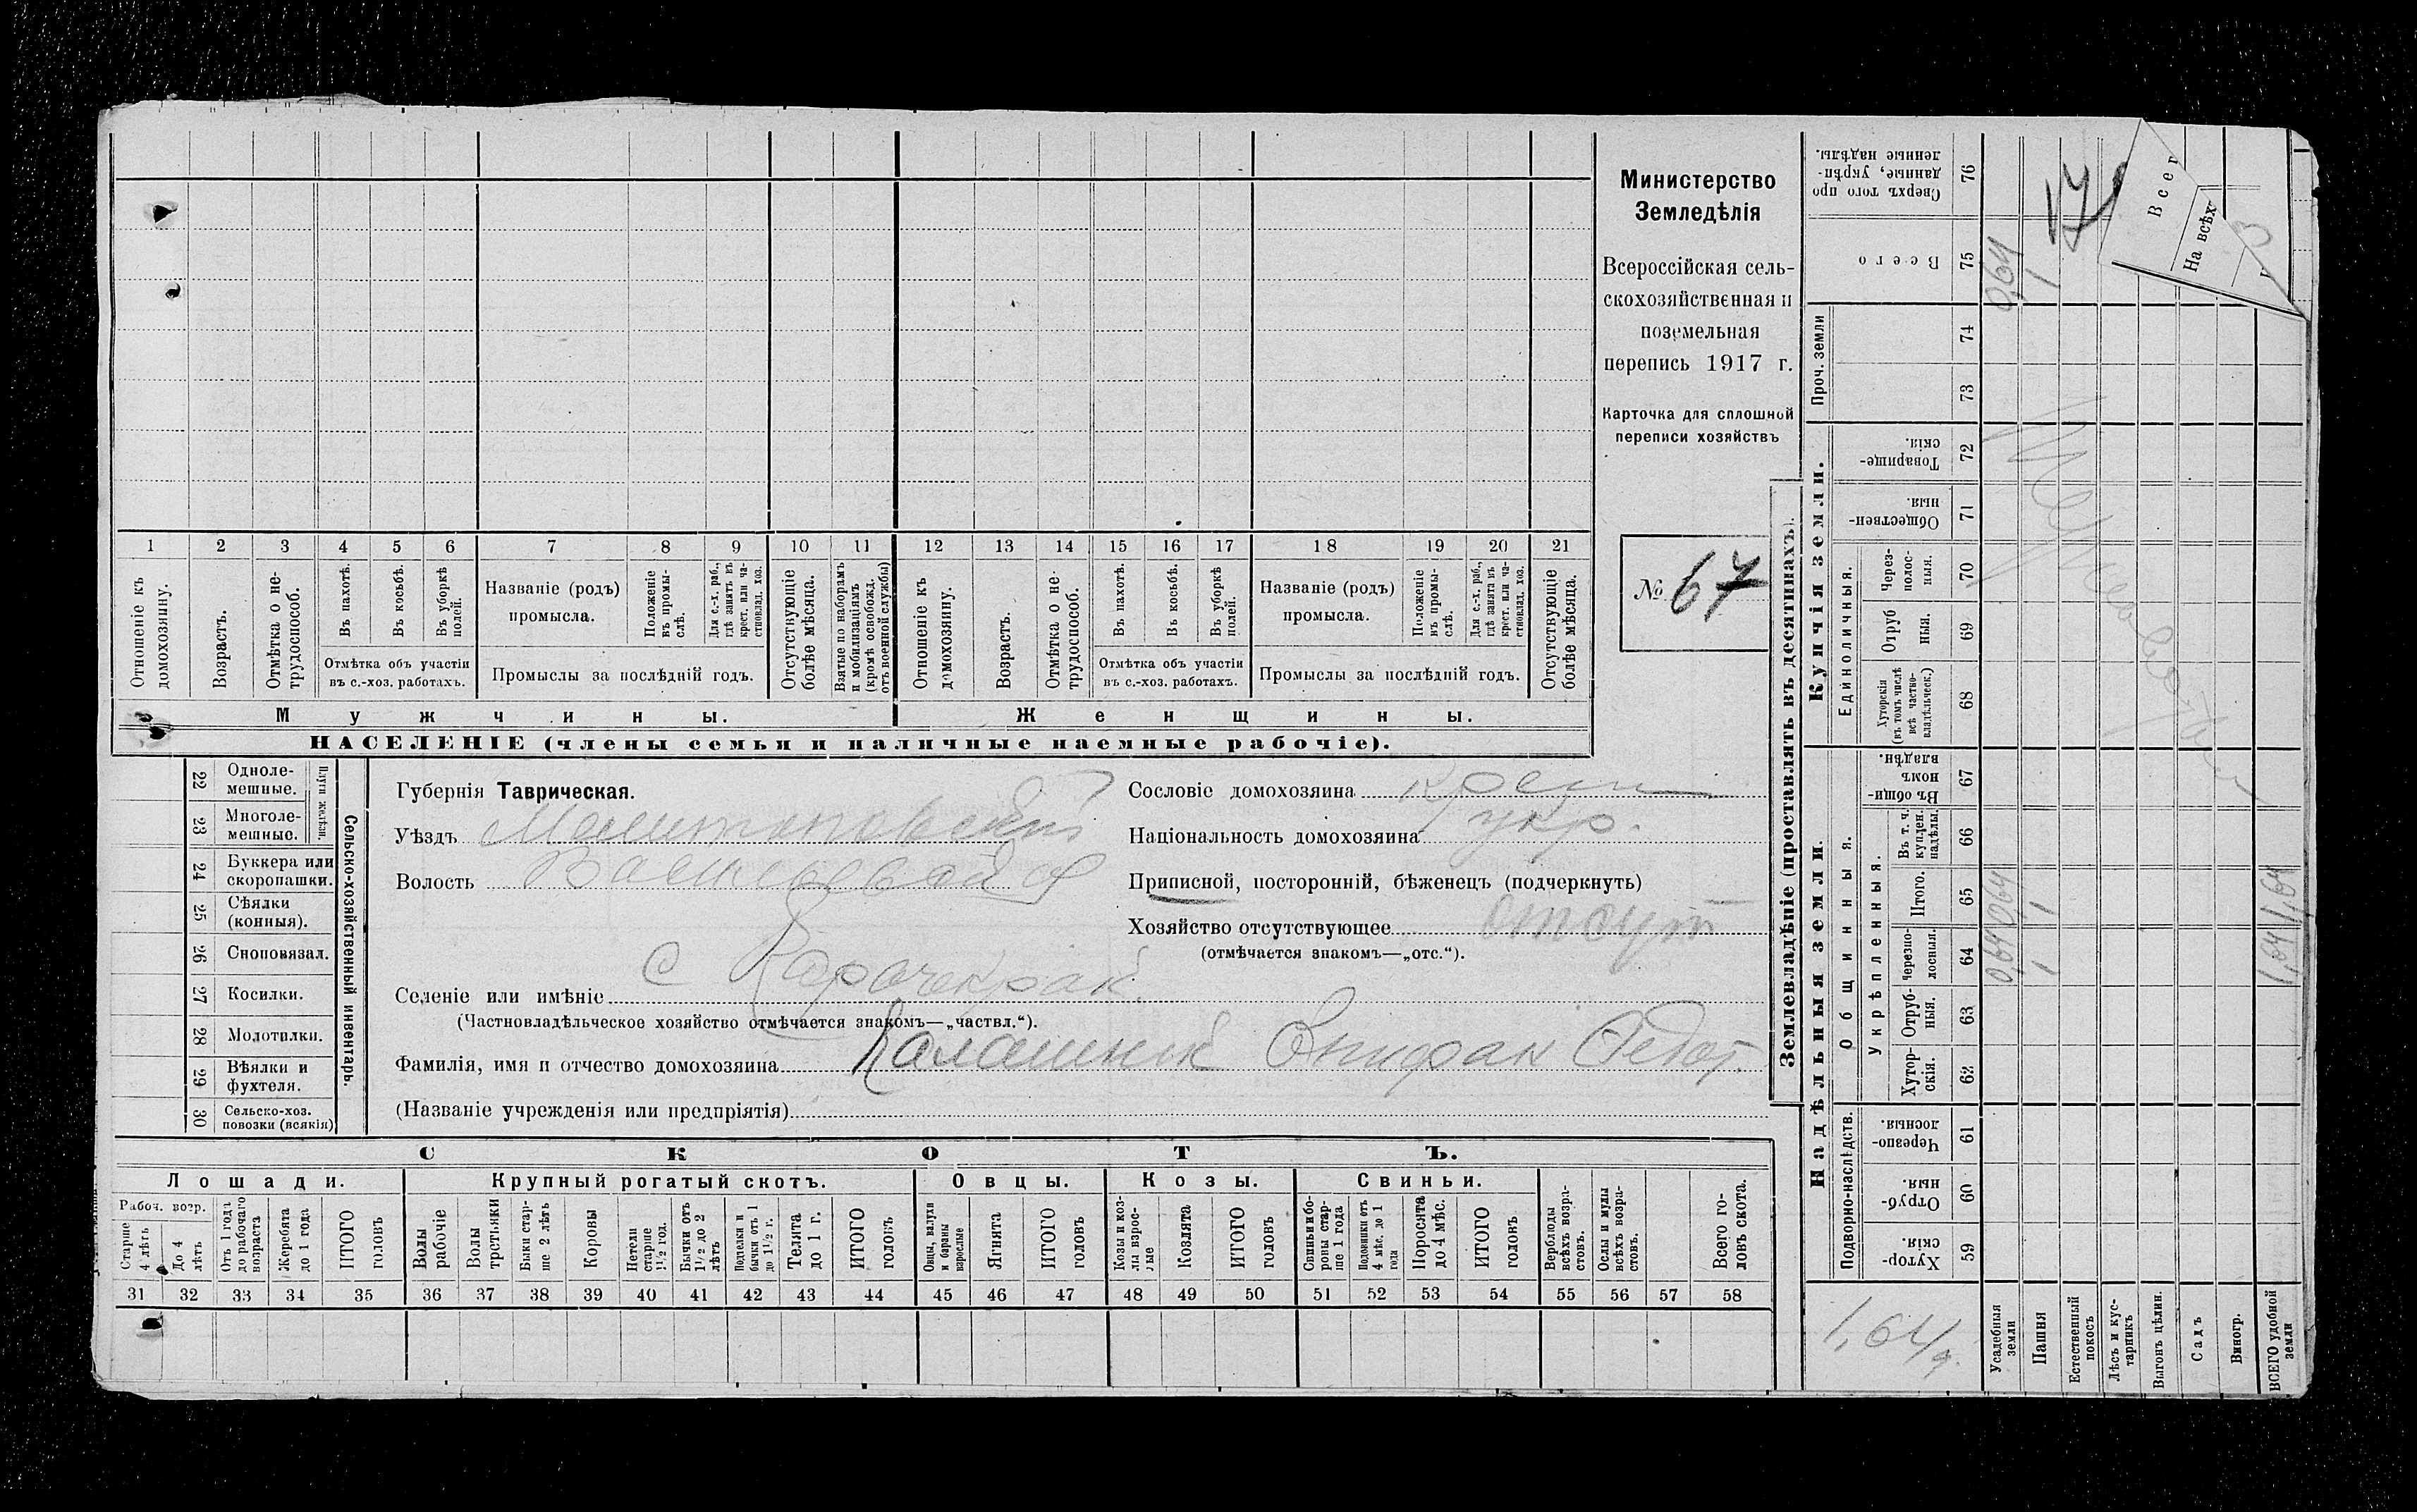 Министерство
Земледѣлія
Всероссійская сель-
скохозяйственная и
поземельная
перепись 1917 г.
Карточка для сплошной
переписи хозяйствъ
№ 67
1 2 3 4 5 6 7 8 9 10 11 12 13 14 15 16 17 18 19 20 21
Отношеніе къ домохозяину.
Возрастъ.
Отмѣтка о не-трудоспособ.
Въ пахотѣ.
Въ косьбѣ.
Въ уборкѣ полей.
Отмѣтка объ участіи
въ с.-хоз. работахъ.
Названіе (родъ)
промысла.
Положеніе въ промы-слѣ.
Для с.-х. раб., гдѣ занятъ въ крест. или ча-стновлад. хоз.
Промыслы за послѣдній годъ.
Отсутствующіе болѣе мѣсяца.
Взятые по наборамъ и мобилизаціямъ (кромѣ освобожд. отъ военной службы)
Отношеніе къ домохозяину.
Возрастъ.
Отмѣтка о не-трудоспособ.
Въ пахотѣ.
Въ косьбѣ.
Въ уборкѣ полей.
Отмѣтка объ участіи
въ с.-хоз. работахъ.
Названіе (родъ)
промысла.
Положеніе въ промы-слѣ.
Для с.-х. раб., гдѣ занята въ крест. или ча-стновлад. хоз.
Промыслы за послѣдній годъ.
Отсутствующіе болѣе мѣсяца.
Мужчины.
Женщины.
НАСЕЛЕНІЕ (члены семьи и наличные наемные рабочіе).
22 Одноле-мешные.
23 Многоле-мешные.
24 Буккера или скоропашки.
25 Сѣялки (конныя).
26 Сноповязал.
27 Косилки.
28 Молотилки.
29 Вѣялки и фухтеля.
30 Сельско-хоз. повозки (всякія)
Сельско-хозяйственный инвентарь.
Губернія Таврическая.
Уѣздъ Мелитопольскій
Волость Васильевская
Селеніе или имѣніе с Карачекрак
(Частновладѣльческое хозяйство отмѣчается знакомъ—„частвл.“).
Фамилія, имя и отчество домохозяина Калашник Епифан Федот.
(Названіе учрежденія или предпріятія)
Сословіе домохозяина крест
Національность домохозяина укр.
Приписной, посторонній, бѣженецъ (подчеркнуть)
Хозяйство отсутствующее отсут
(отмѣчается знакомъ—„отс.“).
СКОТЪ.
Лошади.
Крупный рогатый скотъ.
Овцы.
Козы.
Свиньи.
Рабоч. возр.
Старше 4 лѣтъ
До 4 лѣтъ
Отъ 1 года до рабочаго возраста
Жеребята до 1 года
ИТОГО головъ
Волы рабочіе
Волы третьяки
Быки стар-ше 2 лѣтъ
Коровы
Нетели старше 1½ год.
Бычки отъ 1½ до 2 лѣтъ
Подтелки и бычки отъ 1 до 1½ г.
Телята до 1 г.
ИТОГО головъ
Овцы, валухи и бараны взрослые
Ягнята
ИТОГО головъ
Козы и коз-лы взрос-лые
Козлята
ИТОГО головъ
Свиньи и бо-ровы стар-ше 1 года
Подсвинки отъ 4 мѣс. до 1 года
Поросята до 4 мѣс.
ИТОГО головъ
Верблюды всѣхъ возра-стовъ.
Ослы и мулы всѣхъ возра-стовъ.
Всего го-ловъ скота.
31 32 33 34 35 36 37 38 39 40 41 42 43 44 45 46 47 48 49 50 51 52 53 54 55 56 57 58
Землевладѣніе (проставлять въ десятинахъ).
Надѣльныя земли.
Купчія земли.
Проч. земли
Подворно-наслѣдств.
Общинныя.
Укрѣпленныя.
Единоличныя.
59 Хутор-скія
60 Отруб-ныя.
61 Черезпо-лосныя.
62 Хутор-скія.
63 Отруб-ныя.
64 Черезпо-лосныя.
65 Итого.
66 Въ т. ч. куплен. надѣлы.
67 Въ общи-номъ владѣн.
68 Хуторскія (въ томъ числѣ всѣ частно-владѣльческ.)
69 Отруб-ныя.
70 Через-полос-ныя.
71 Обществен-ныя.
72 Товарище-скія.
73
74
75 Всего
76 Сверхъ того про-данные, укрѣп-ленные надѣлы.
Усадебныя земли 0,64 0,64 0,64
Пашня 1 1 1
Естественный покосъ
Лѣсъ и кус-тарникъ
Выгонъ цѣлин.
Садъ
Виногр.
ВСЕГО удобной земли 1,64 1,64
1,64
17
Всег
На всѣхъ